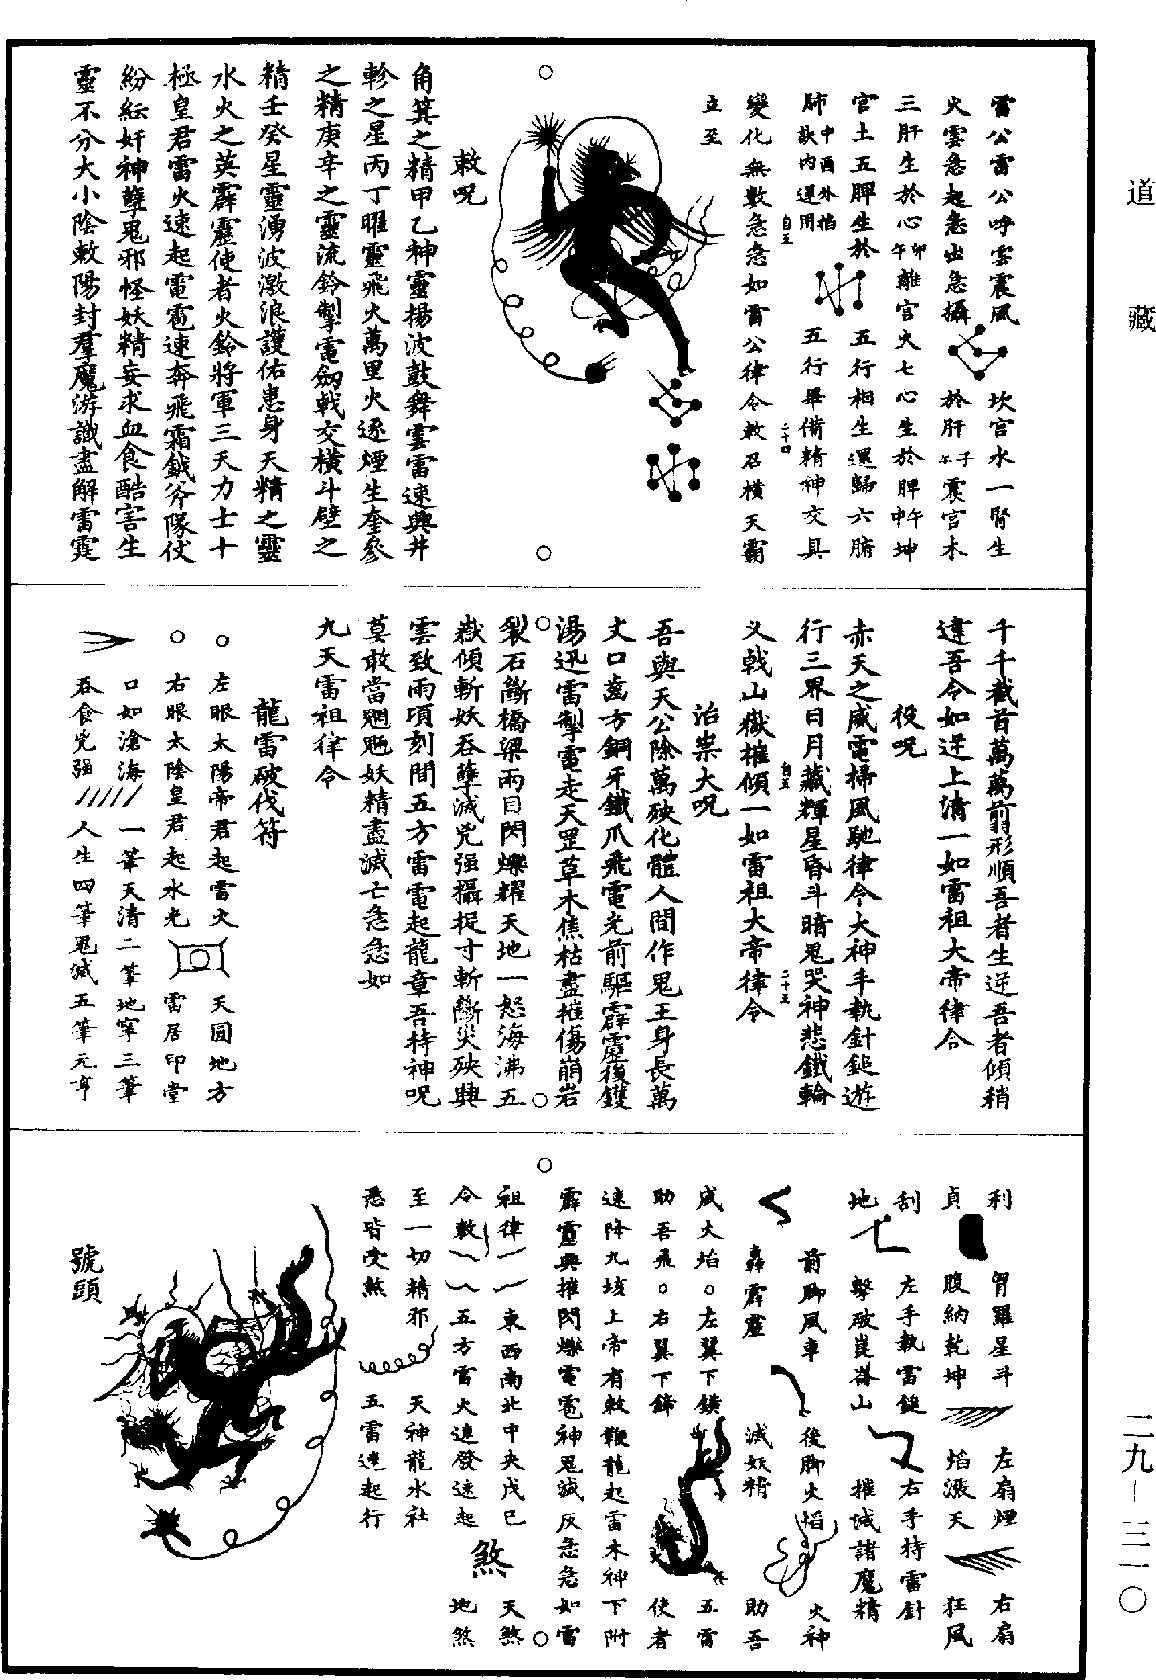 道藏
雷公雷公呼雲震風 坎宮水一腎生
火雲急起急出急攝 於肝子 震宮木
三肝生於心卯午離宮火七心生於脾 坤
宮土五脾生於 五行相生還歸六腑
肺中酉外掐訣內運用 五行畢備精神交具
變化無數急急如雷公律令敕召橫天霸
立至
自至
二十四
敕呪
角箕之精甲乙神靈揚波鼓舞雲雷速興井
軫之星丙丁曜靈飛火萬里火逐煙生奎參
之精庚辛之靈流鈴掣電劒戟交橫斗壁之
精壬癸星靈湧波激浪護佑患身天精之靈
水火之英霹靂使者火鈴將軍三天力士十
極皇君雷火速起電雹速奔飛霜鉞斧隊仗
紛紜奸神孽鬼邪怪妖精妄求血食酷害生
靈不分大小陰敕陽封羣魔游讖盡解雷霆
千千截首萬萬剪形順吾者生逆吾者傾稍
違吾令如逆上清一如雷祖大帝律令
役呪
赤天之威電掃風馳律令大神手執針鎚遊
行三界日月藏輝星昏斗暗鬼哭神悲鐵輪
乂戟山嶽摧傾一如雷祖大帝律令
自至
二十五
治祟大呪
吾與天公除萬殃化體人間作鬼王身長萬
丈口齒方鋼牙鐵爪飛電光前驅霹靂復鑊
湯迅雷掣電走天罡草木焦枯盡摧傷崩岩
裂石斷橋梁兩目閃爍耀天地一怒海沸五
嶽傾斬妖吞孽滅兇强攝捉寸斬斷災殃興
雲致雨頃刻間五方雷電起龍章吾持神呪
莫敢當魍魎妖精盡滅亡急急如
九天雷祖律令
龍雷破伐符
左眼太陽帝君起雷火 天圓地方
右眼太陰皇君起水光 雷居印堂
口如滄海 一筆天清二筆地寧三筆
吞食兇强 人生四筆鬼滅五筆元亨
利 胷羅星斗 左扇煙 右扇
貞 腹納乾坤 焰漲天 狂風
刮 左手執雷鎚 右手持雷針
地 擊破崑崙山 摧滅諸魔精
前脚風車 後脚火焰 火神
轟霹靂 滅妖精 助吾
成大焰。左翼下鐵 五雷
助吾飛。右翼下鏘 使者
速降九垓上帝有敕鞭龍起雷木神下附
霹靂興摧閃爍電雹神鬼滅灰急急如雷
祖律 東西南北中央戊巳 天煞
令敕 五方雷火速發速起 煞 地煞
至一切精邪 天神龍水社
悉皆受煞 五雷速起行
號頭
二九—三一〇